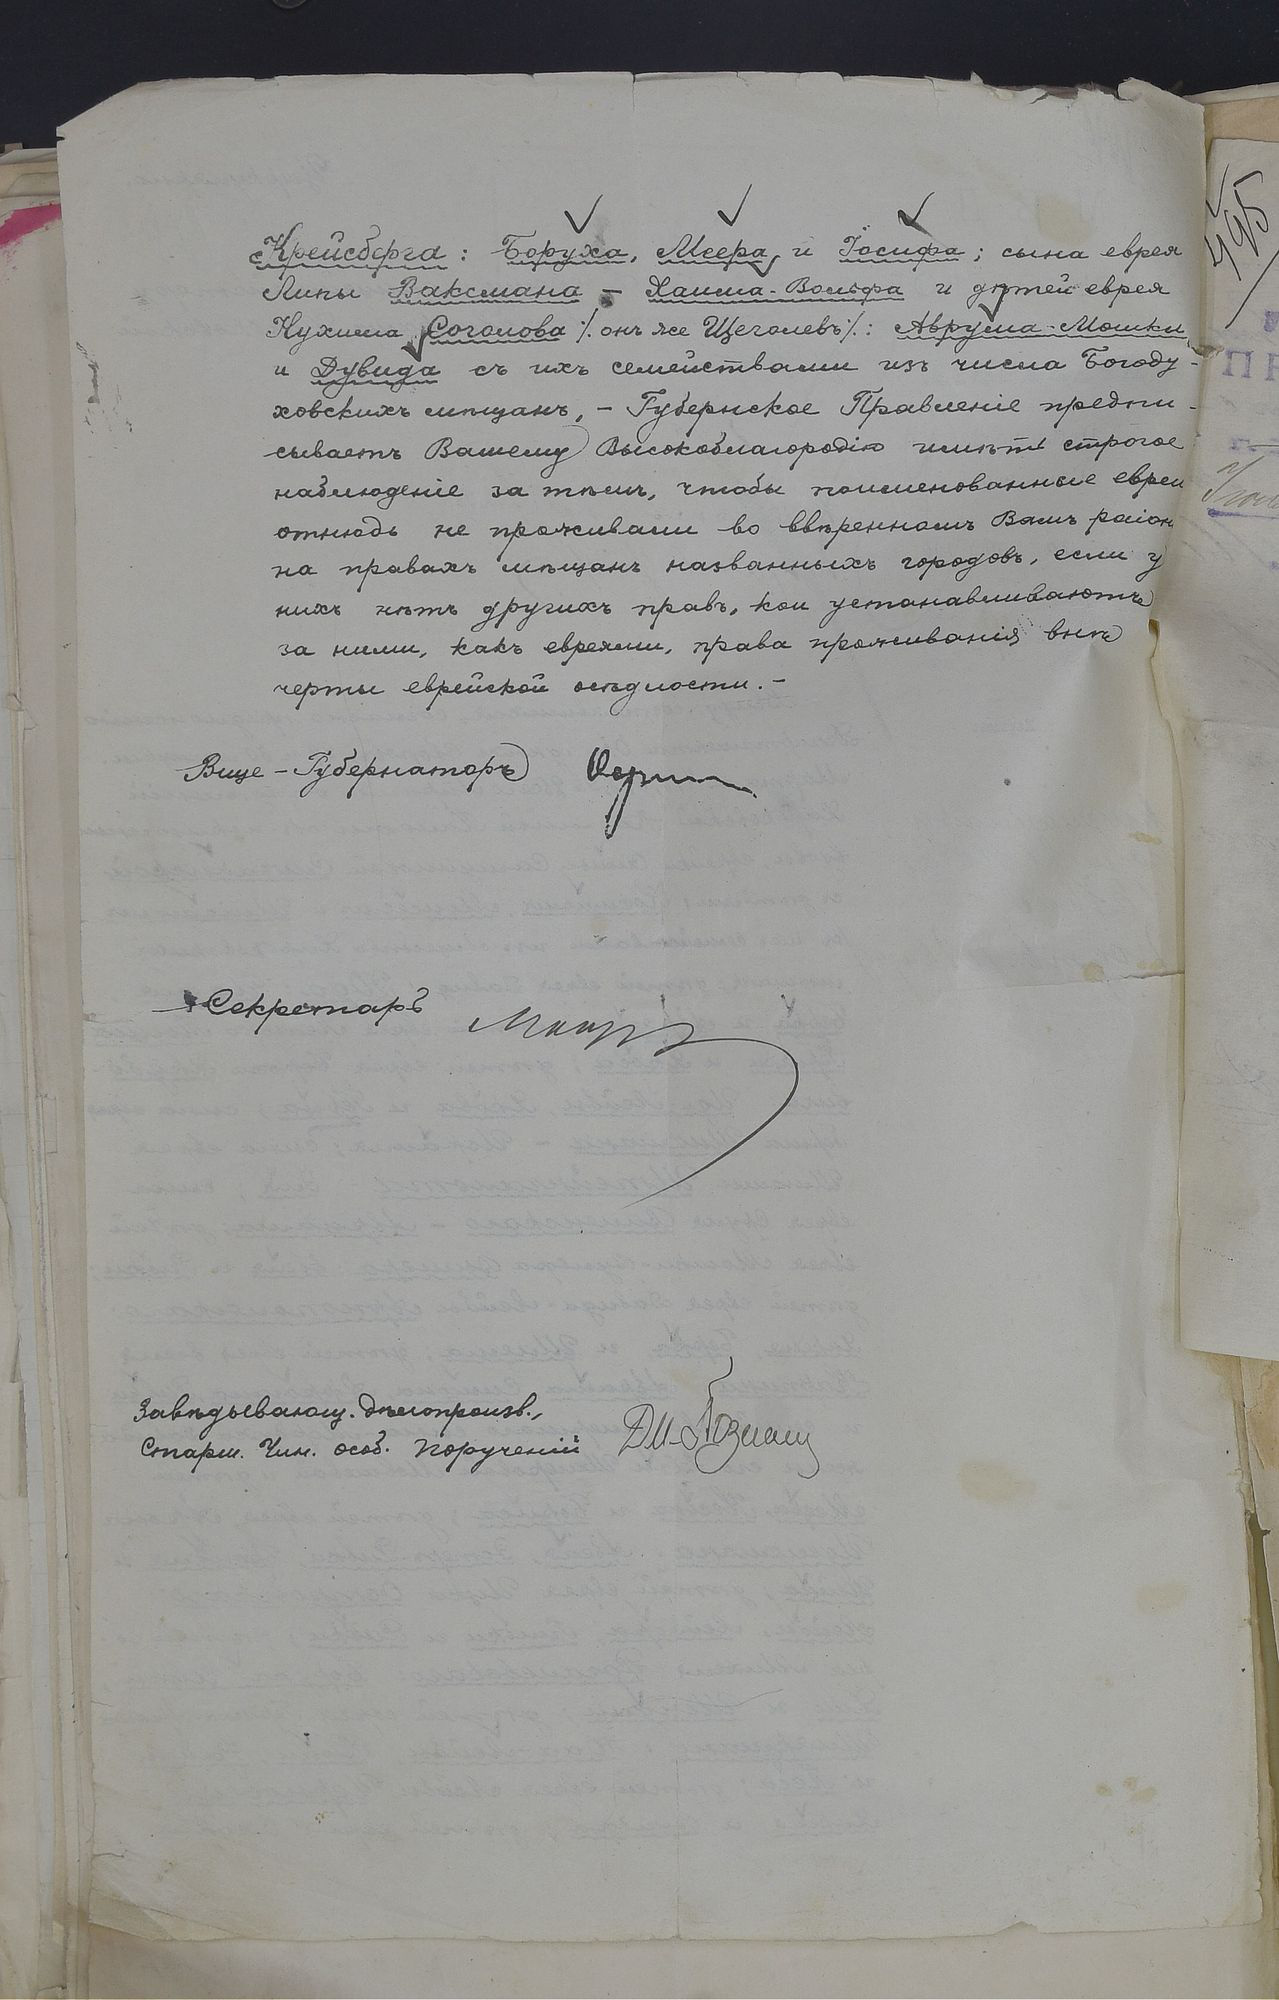 Крейсберга: Боруха, Меера, и Іосифа; сына еврея
Липы Ваксмана – Хаима-Вольфа и дѣтей еврея
Нухима Соголова /. онъ же Щеголевъ ./: Аврума-Мошки
и Дувида съ ихъ семействами изъ числа Богоду-
ховскихъ мѣщанъ, – Губернское Правленіе предпи-
сываетъ Вашему Высокоблагородію имѣть строгое
наблюденіе за тѣмъ, чтобы поименованные евреи
отнюдь не проживали во ввѣренномъ Вамъ район
на правахъ мѣщанъ названныхъ городовъ, если у
нихъ нѣтъ другихъ правъ, кои устанавливаютъ
за ними, какъ евреями, права проживанія внѣ
черты еврейской осѣдлости. –
Вице-Губернаторъ
Секретарь
Завѣдывающ. дѣлопроизв.,
Старш. Чин. особ. порученій
495